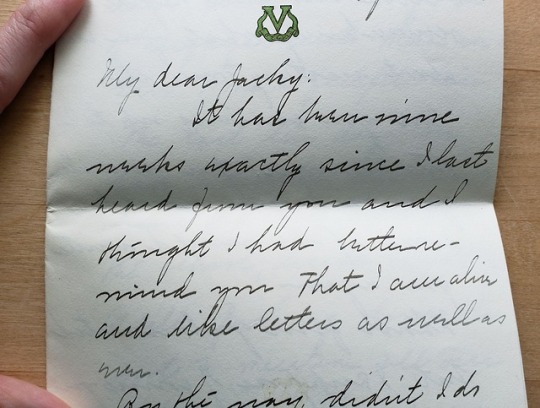 V
My dear Jacky:
It has been nine
weeks exactly since I last
heard from you and I
thought I had better re-
mind you that I am alive
and like letters as well as
ever.
By the way, didn't I do